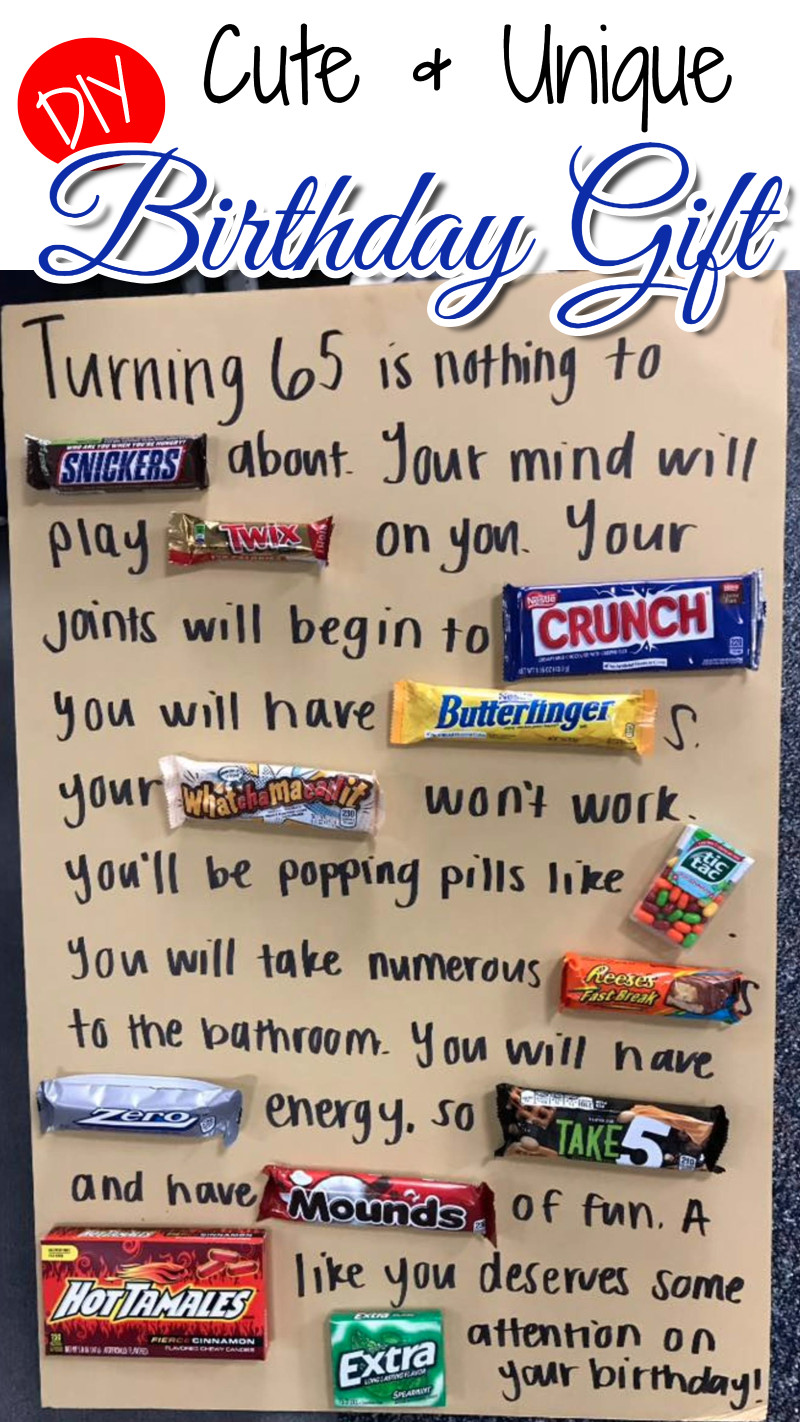 DIY
Cute & Unique
Birthday Gift
Turning 65 is nothing to
SNICKERS about. Your mind will
play TWIX on you. Your
joints will begin to Nestle CRUNCH
you will have Butterfinger s.
your Whatchamacallit won't work.
you'll be popping pills like tic tac .
You will take numerous Reese's Fast Break s
to the bathroom. You will have
Zero energy, so TAKE 5
and have Mounds of fun. A
HOT TAMALES FIERCE CINNAMON like you deserves some
Extra LONG LASTING FLAVOR SPEARMINT attention on
your birthday!